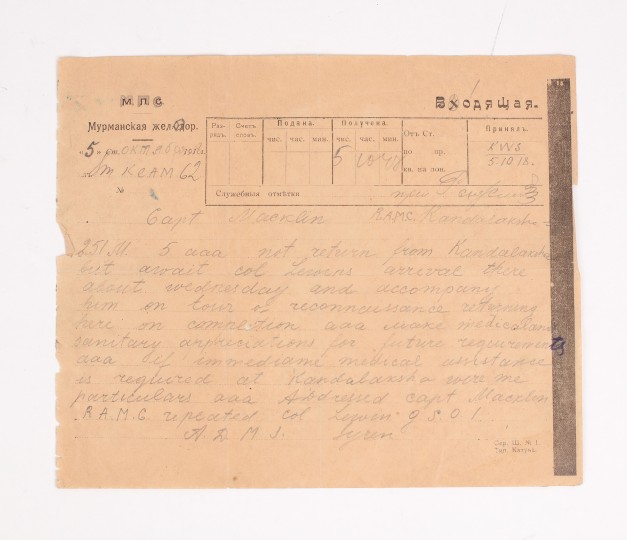 М. П. С.
Входящая.
Мурманская жел. дор.
"5" октяб 1918г.
КЕАМ 62
№
Раз-рядъ. Счетъ словъ. Подана. Получена. Отъ Ст. Принялъ.
час. чис. мин. чис. час. мин.
по пр. KWS
кв. на лон. 5.10.18.
5
Служебныя отмѣтки
Capt Macklin R.A.M.C. Kandalaksha =
251 M. 5 aaa not return from Kandalaksha
but await col Lewins arrival there
about wednesday and accompany
him on tour of reconnaissance returning
here on completion aaa make medical and
sanitary appreciations for future requirements
aaa if immediate medical assistance
is required at Kandalaksha wire me
particulars aaa Addressed capt Macklin
R.A.M.C. repeated col Lewin G S O 1.
A. D M S. Syren
Сер. Щ. № 1.
Тип. Каруна.